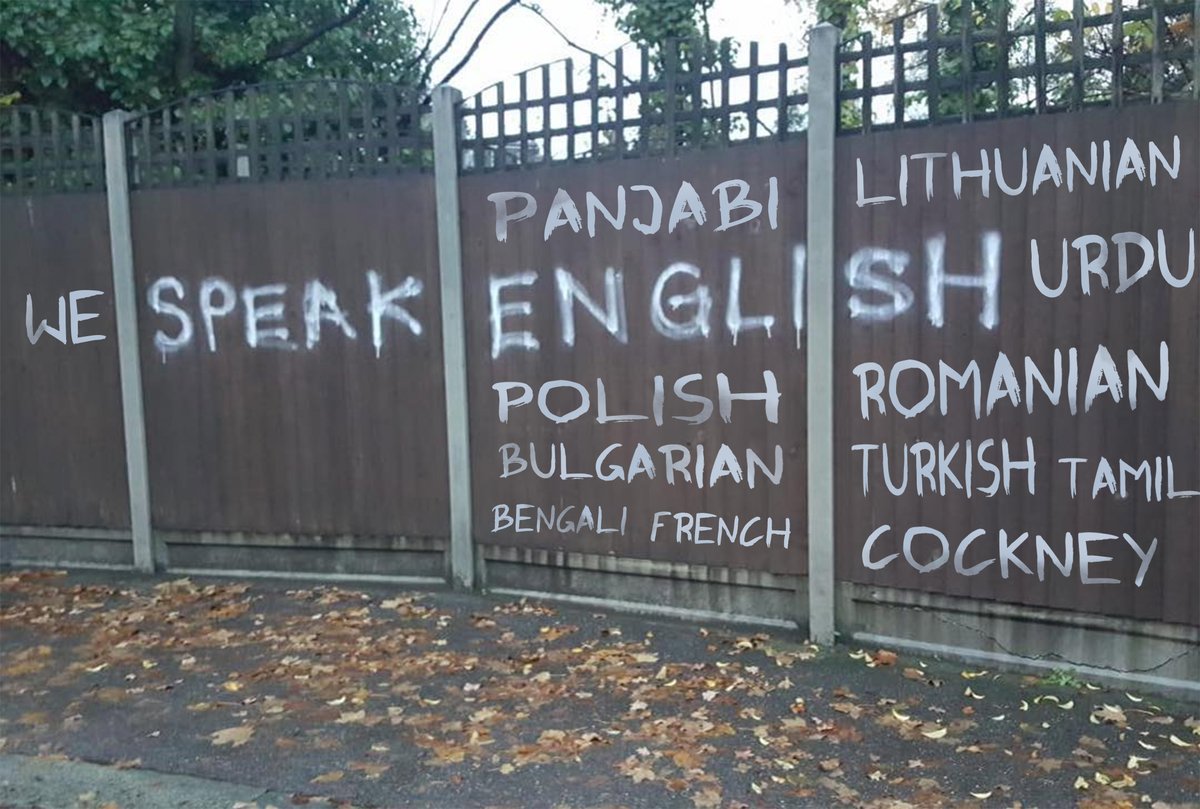 PANJABI LITHUANIAN
WE SPEAK ENGLISH URDU
POLISH ROMANIAN
BULGARIAN TURKISH TAMIL
BENGALI FRENCH COCKNEY